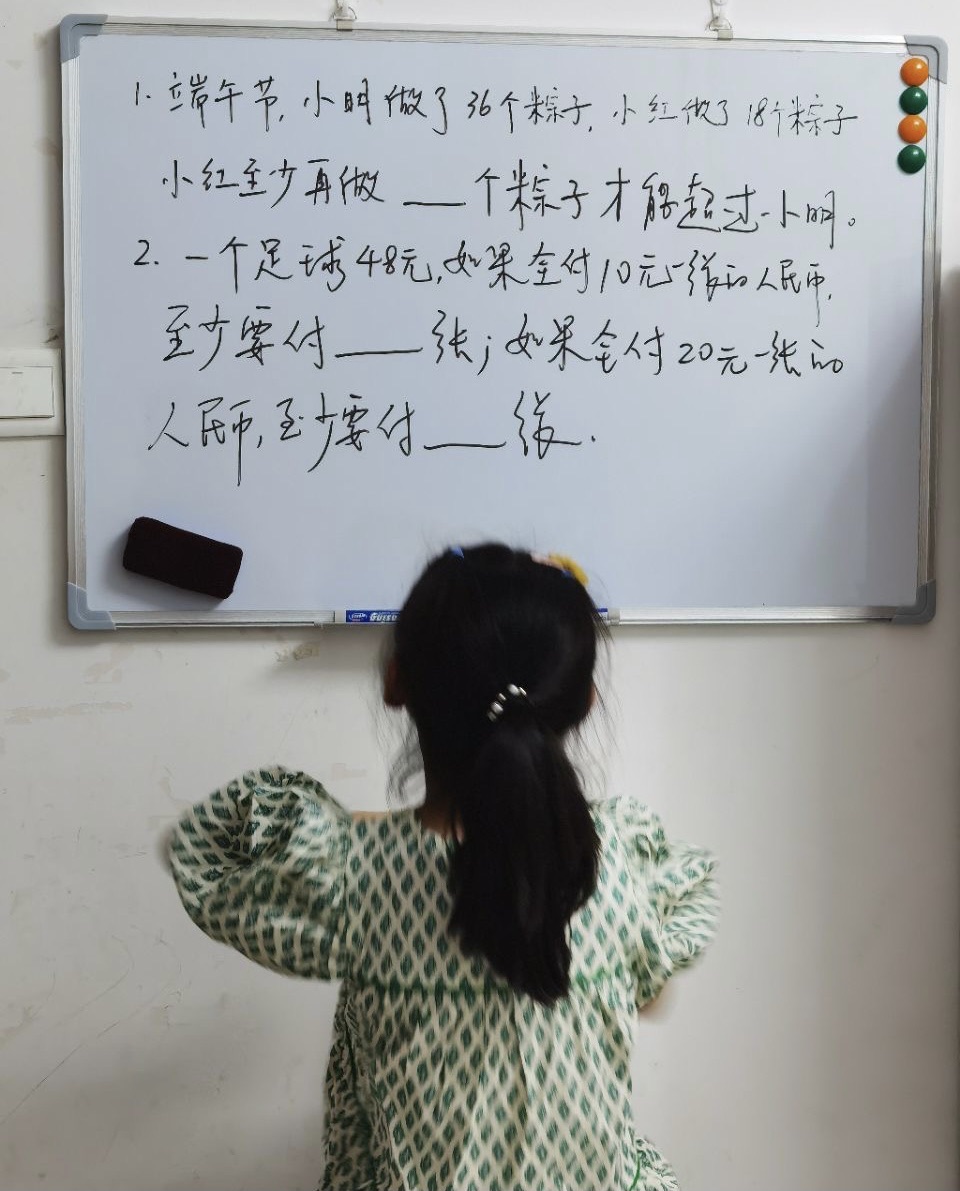 1. 端午节, 小明做了36个粽子, 小红做了18个粽子
小红至少再做 ___ 个粽子才能超过小明。
2. 一个足球48元, 如果全付10元一张的人民币,
至少要付 ___ 张; 如果全付20元一张的
人民币, 至少要付 ___ 张.